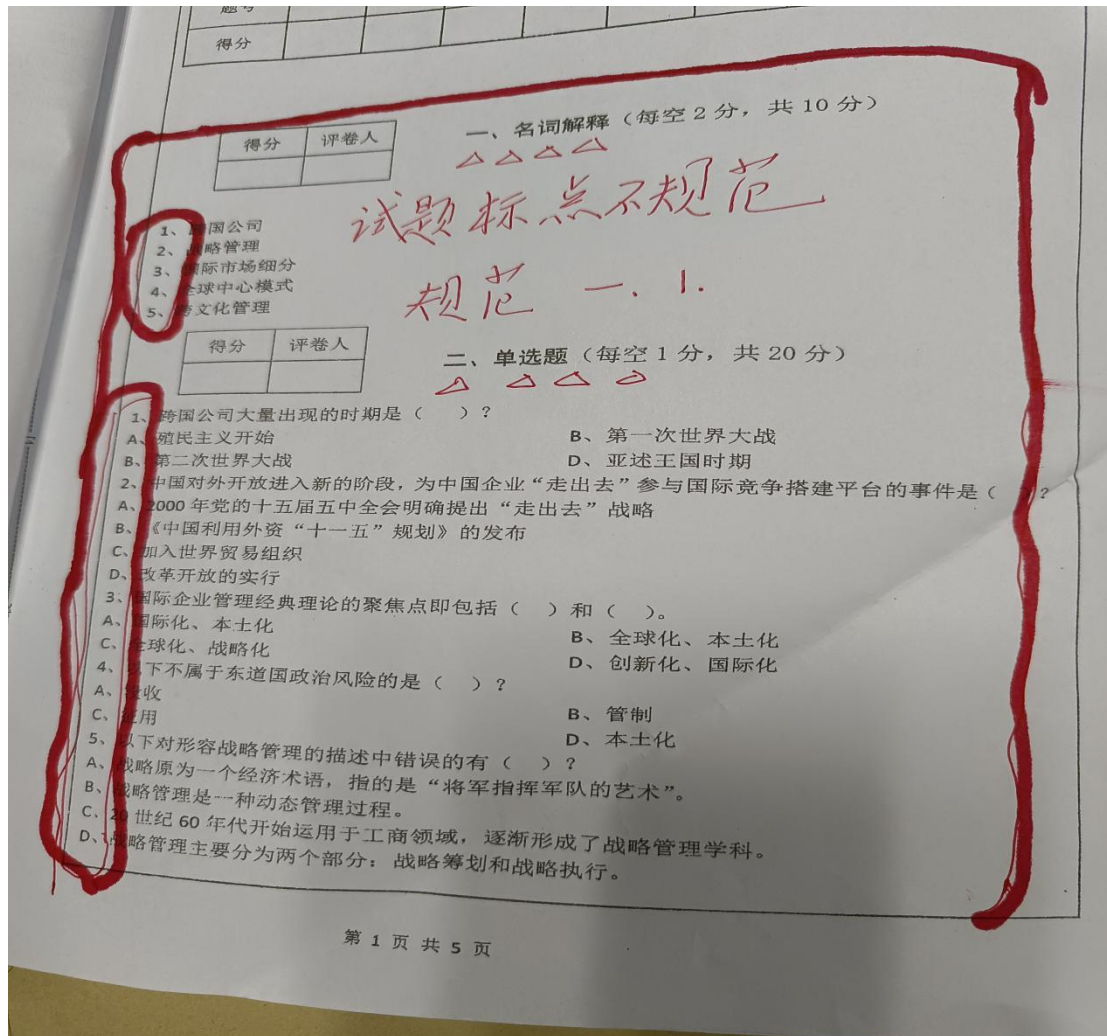 题号
得分
得分 评卷人
一、名词解释（每空 2 分，共 10 分）
试题标点不规范
1、跨国公司
2、战略管理
3、国际市场细分
4、全球中心模式
5、跨文化管理
规范 一、1.
得分 评卷人
二、单选题（每空 1 分，共 20 分）
1、跨国公司大量出现的时期是（ ）？
A、殖民主义开始 B、第一次世界大战
B、第二次世界大战 D、亚述王国时期
2、中国对外开放进入新的阶段，为中国企业“走出去”参与国际竞争搭建平台的事件是（ ）？
A、2000 年党的十五届五中全会明确提出“走出去”战略
B、《中国利用外资“十一五”规划》的发布
C、加入世界贸易组织
D、改革开放的实行
3、国际企业管理经典理论的聚焦点即包括（ ）和（ ）。
A、国际化、本土化 B、全球化、本土化
C、全球化、战略化 D、创新化、国际化
4、以下不属于东道国政治风险的是（ ）？
A、没收 B、管制
C、征用 D、本土化
5、以下对形容战略管理的描述中错误的有（ ）？
A、战略原为一个经济术语，指的是“将军指挥军队的艺术”。
B、战略管理是一种动态管理过程。
C、20 世纪 60 年代开始运用于工商领域，逐渐形成了战略管理学科。
D、战略管理主要分为两个部分：战略筹划和战略执行。
第 1 页 共 5 页